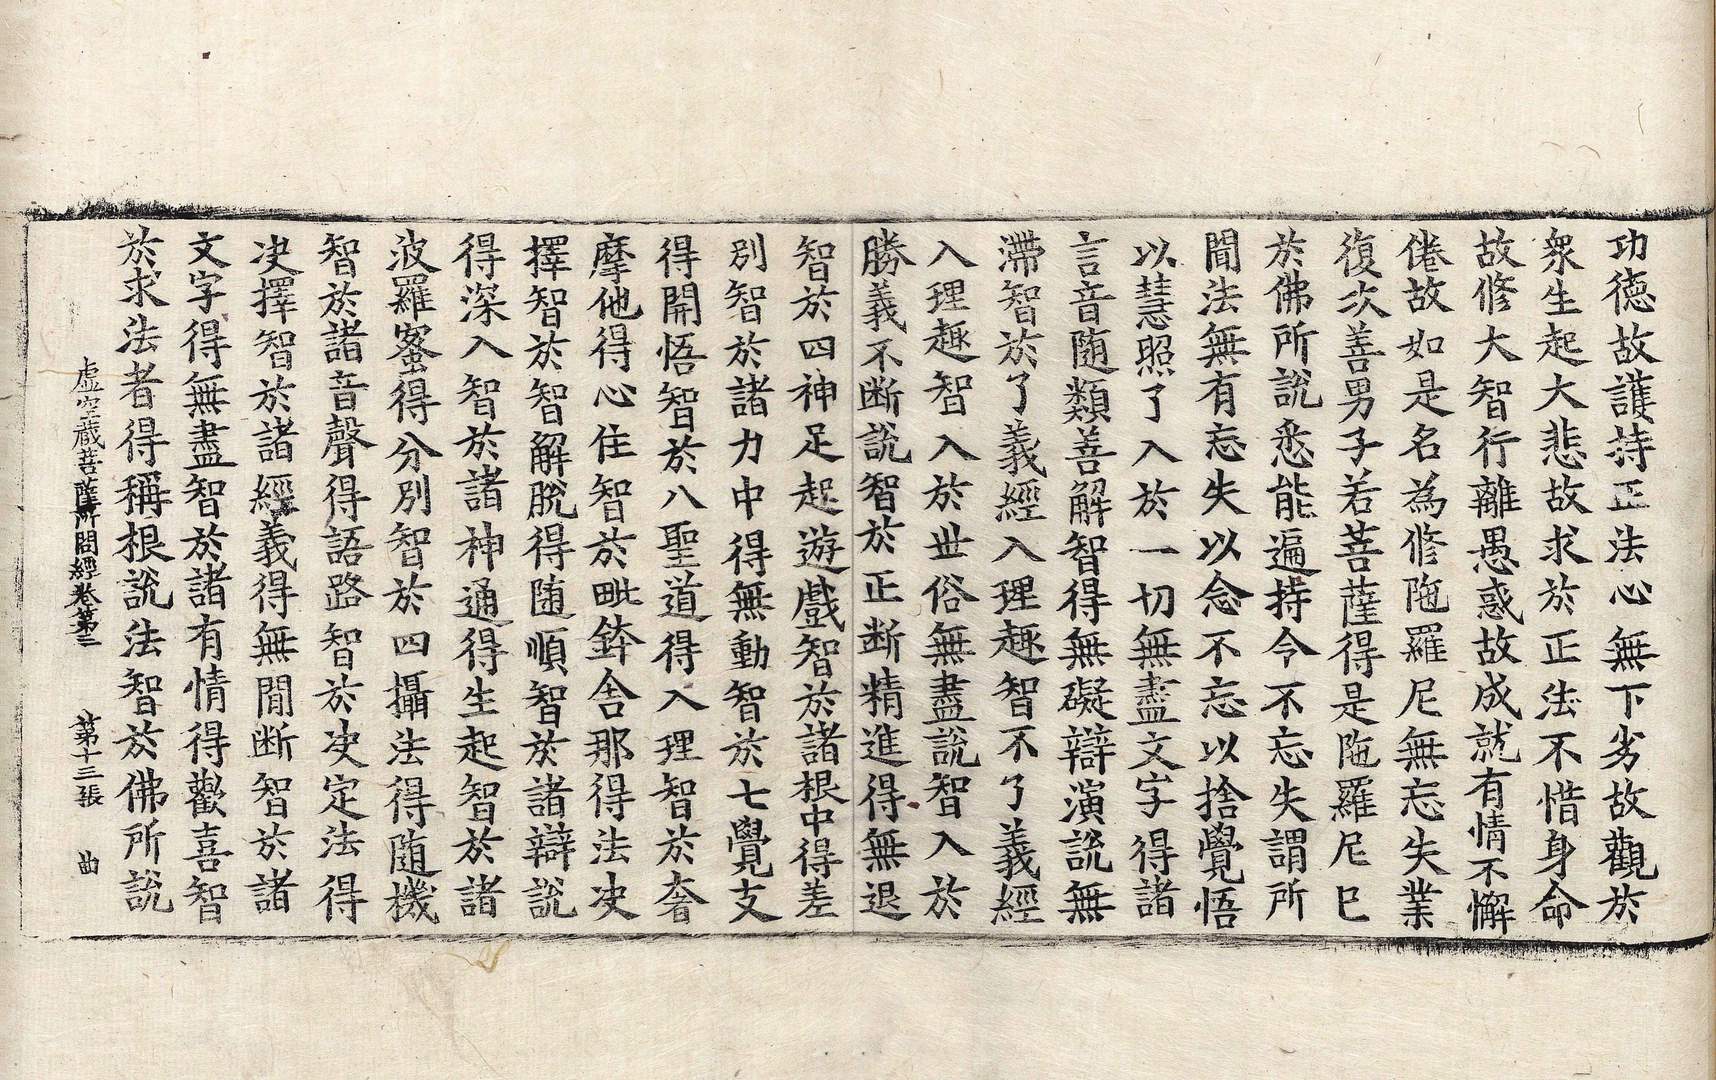 功德故護持正法心無下劣故觀於
衆生起大悲故求於正法不惜身命
故修大智行離愚惑故成就有情不懈
倦故如是名為修陁羅尼無忘失業
復次善男子若菩薩得是陁羅尼已
於佛所說悉能遍持令不忘失謂所
聞法無有忘失以念不忘以捨覺悟
以慧照了入於一切無盡文字得諸
言音随類善解智得無礙辯演說無
滯智於了義經入理趣智不了義經
入理趣智入於世俗無盡說智入於
勝義不断說智於正断精進得無退
智於四神足起遊戲智於諸根中得差
別智於諸力中得無動智於七覺支
得開悟智於八聖道得入理智於奢
摩他得心住智於毗鉢舍那得法决
擇智於智解脫得随順智於諸辯說
得深入智於諸神通得生起智於諸
波羅蜜得分別智於四攝法得随機
智於諸音聲得語路智於决定法得
决擇智於諸經義得無間断智於諸
文字得無盡智於諸有情得歡喜智
於求法者得稱根說法智於佛所說
虛空藏菩薩所問經卷第三 第十三張 曲